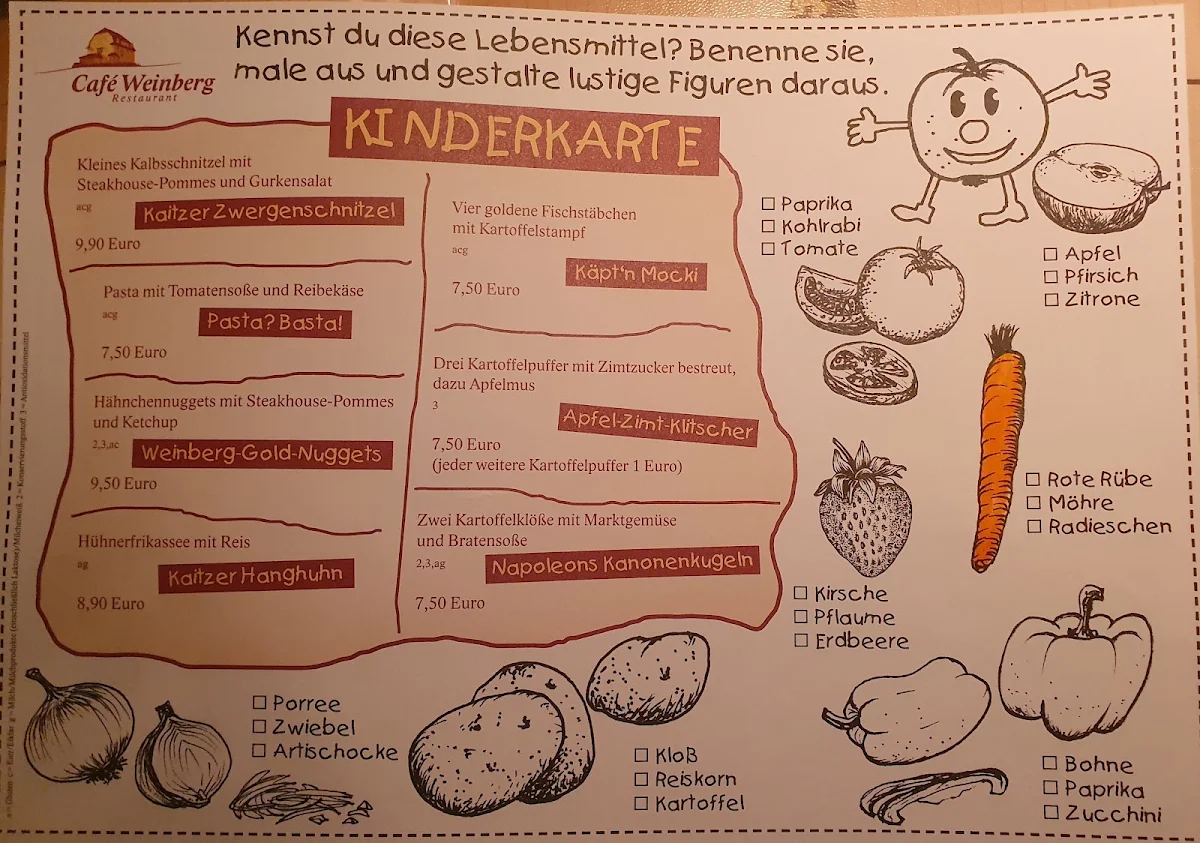 Café Weinberg
Restaurant
Kennst du diese Lebensmittel? Benenne sie,
male aus und gestalte lustige Figuren daraus.
KINDERKARTE
Kleines Kalbsschnitzel mit
Steakhouse-Pommes und Gurkensalat
acg
Kaitzer Zwergenschnitzel
9,90 Euro
Pasta mit Tomatensoße und Reibekäse
acg
Pasta? Basta!
7,50 Euro
Hähnchennuggets mit Steakhouse-Pommes
und Ketchup
2,3,ac
Weinberg-Gold-Nuggets
9,50 Euro
Hühnerfrikassee mit Reis
ag
Kaitzer Hanghuhn
8,90 Euro
Vier goldene Fischstäbchen
mit Kartoffelstampf
acg
Käpt'n Mocki
7,50 Euro
Drei Kartoffelpuffer mit Zimtzucker bestreut,
dazu Apfelmus
3
Apfel-Zimt-Klitscher
7,50 Euro
(jeder weitere Kartoffelpuffer 1 Euro)
Zwei Kartoffelklöße mit Marktgemüse
und Bratensoße
2,3,ag
Napoleons Kanonenkugeln
7,50 Euro
Paprika
Kohlrabi
Tomate
Apfel
Pfirsich
Zitrone
Rote Rübe
Möhre
Radieschen
Kirsche
Pflaume
Erdbeere
Porree
Zwiebel
Artischocke
Kloß
Reiskorn
Kartoffel
Bohne
Paprika
Zucchini
a = Gluten c = Eier/Eiklar g = Milch/Milchprodukte (einschließlich Laktose)/Milcheiweiß 2 = Konservierungsstoff 3 = Antioxidationsmittel